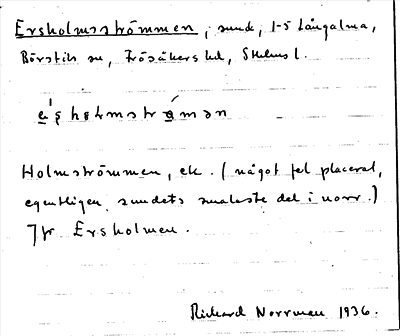 Ersholmsströmmen, sund, 1-5 Långalma,
Börstils sn, Frösåkers hd, Sthlms l.
e̱ʹşhɵlmstrø̱̀mən
Holmströmmen, ek. (något fel placerat,
egentligen sundets smalaste del i norr.)
Jfr Ersholmen.
Rickard Norrman 1936.